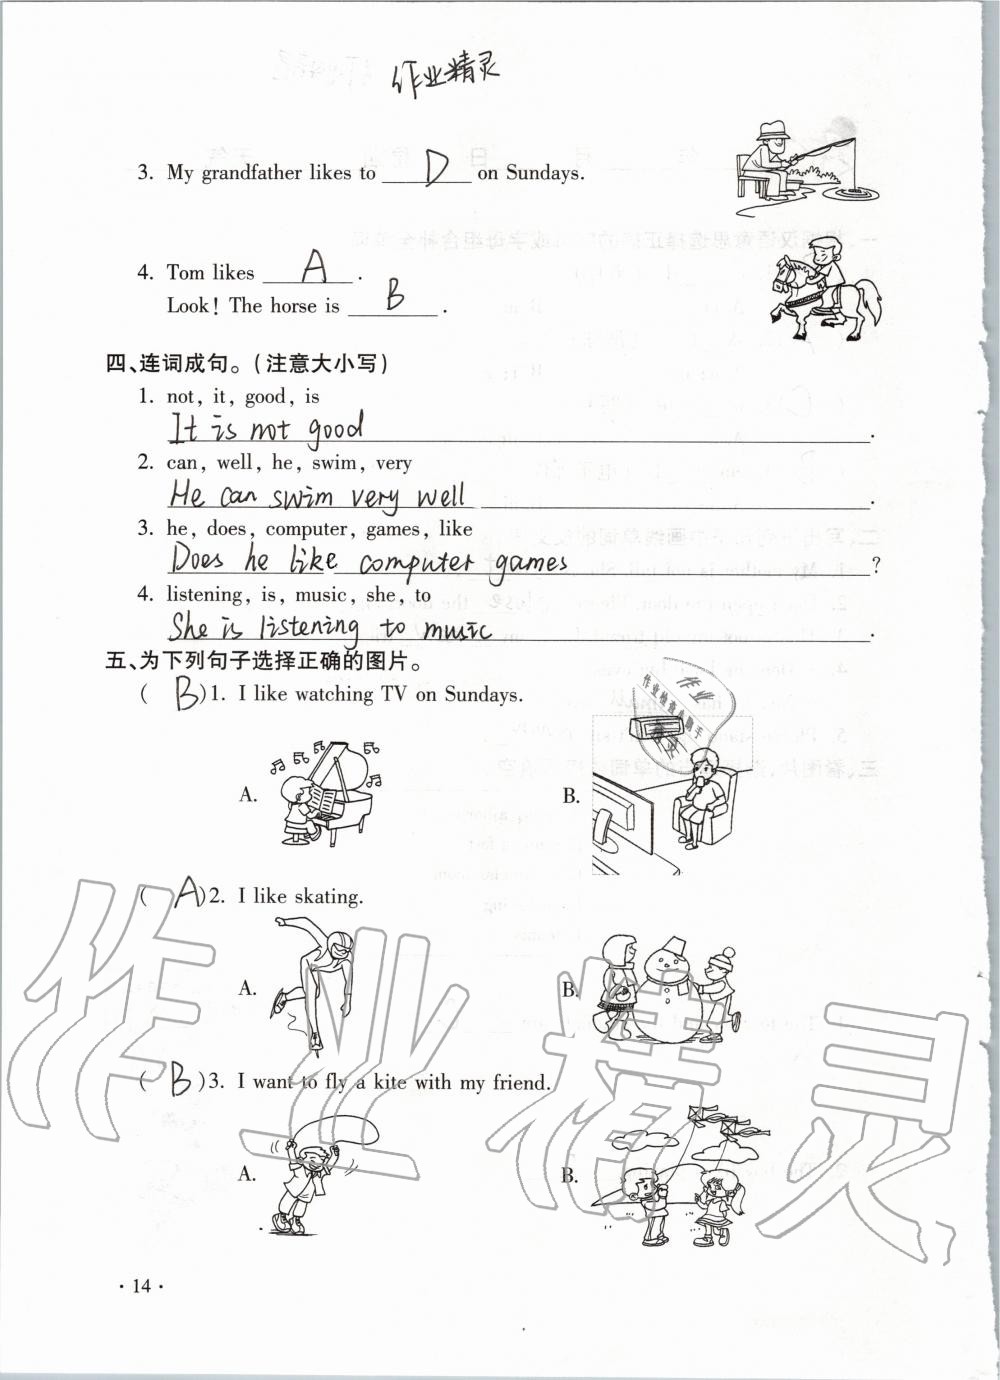 作业精灵
3. My grandfather likes to D on Sundays.
4. Tom likes A .
Look! The horse is B .
四、连词成句。(注意大小写)
1. not, it, good, is
It is not good .
2. can, well, he, swim, very
He can swim very well .
3. he, does, computer, games, like
Does he like computer games ?
4. listening, is, music, she, to
She is listening to music .
五、为下列句子选择正确的图片。
( B )1. I like watching TV on Sundays.
A. B.
( A )2. I like skating.
A. B.
( B )3. I want to fly a kite with my friend.
A. B.
· 14 ·
作业精灵